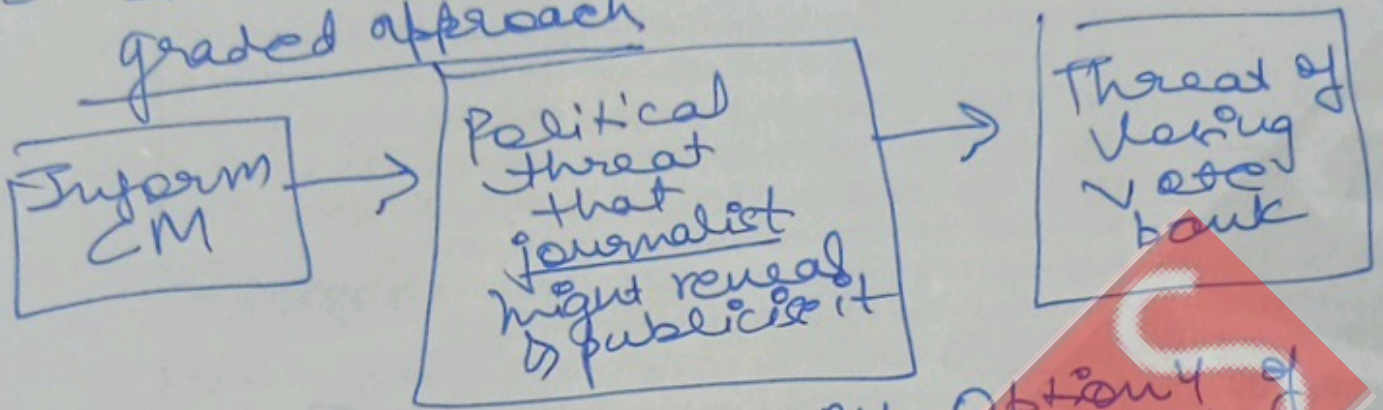 graded approach
Inform
CM
Political
threat
that
journalist
might reveal
& publicise it
Threat of
losing
vote
bank
option 4 of